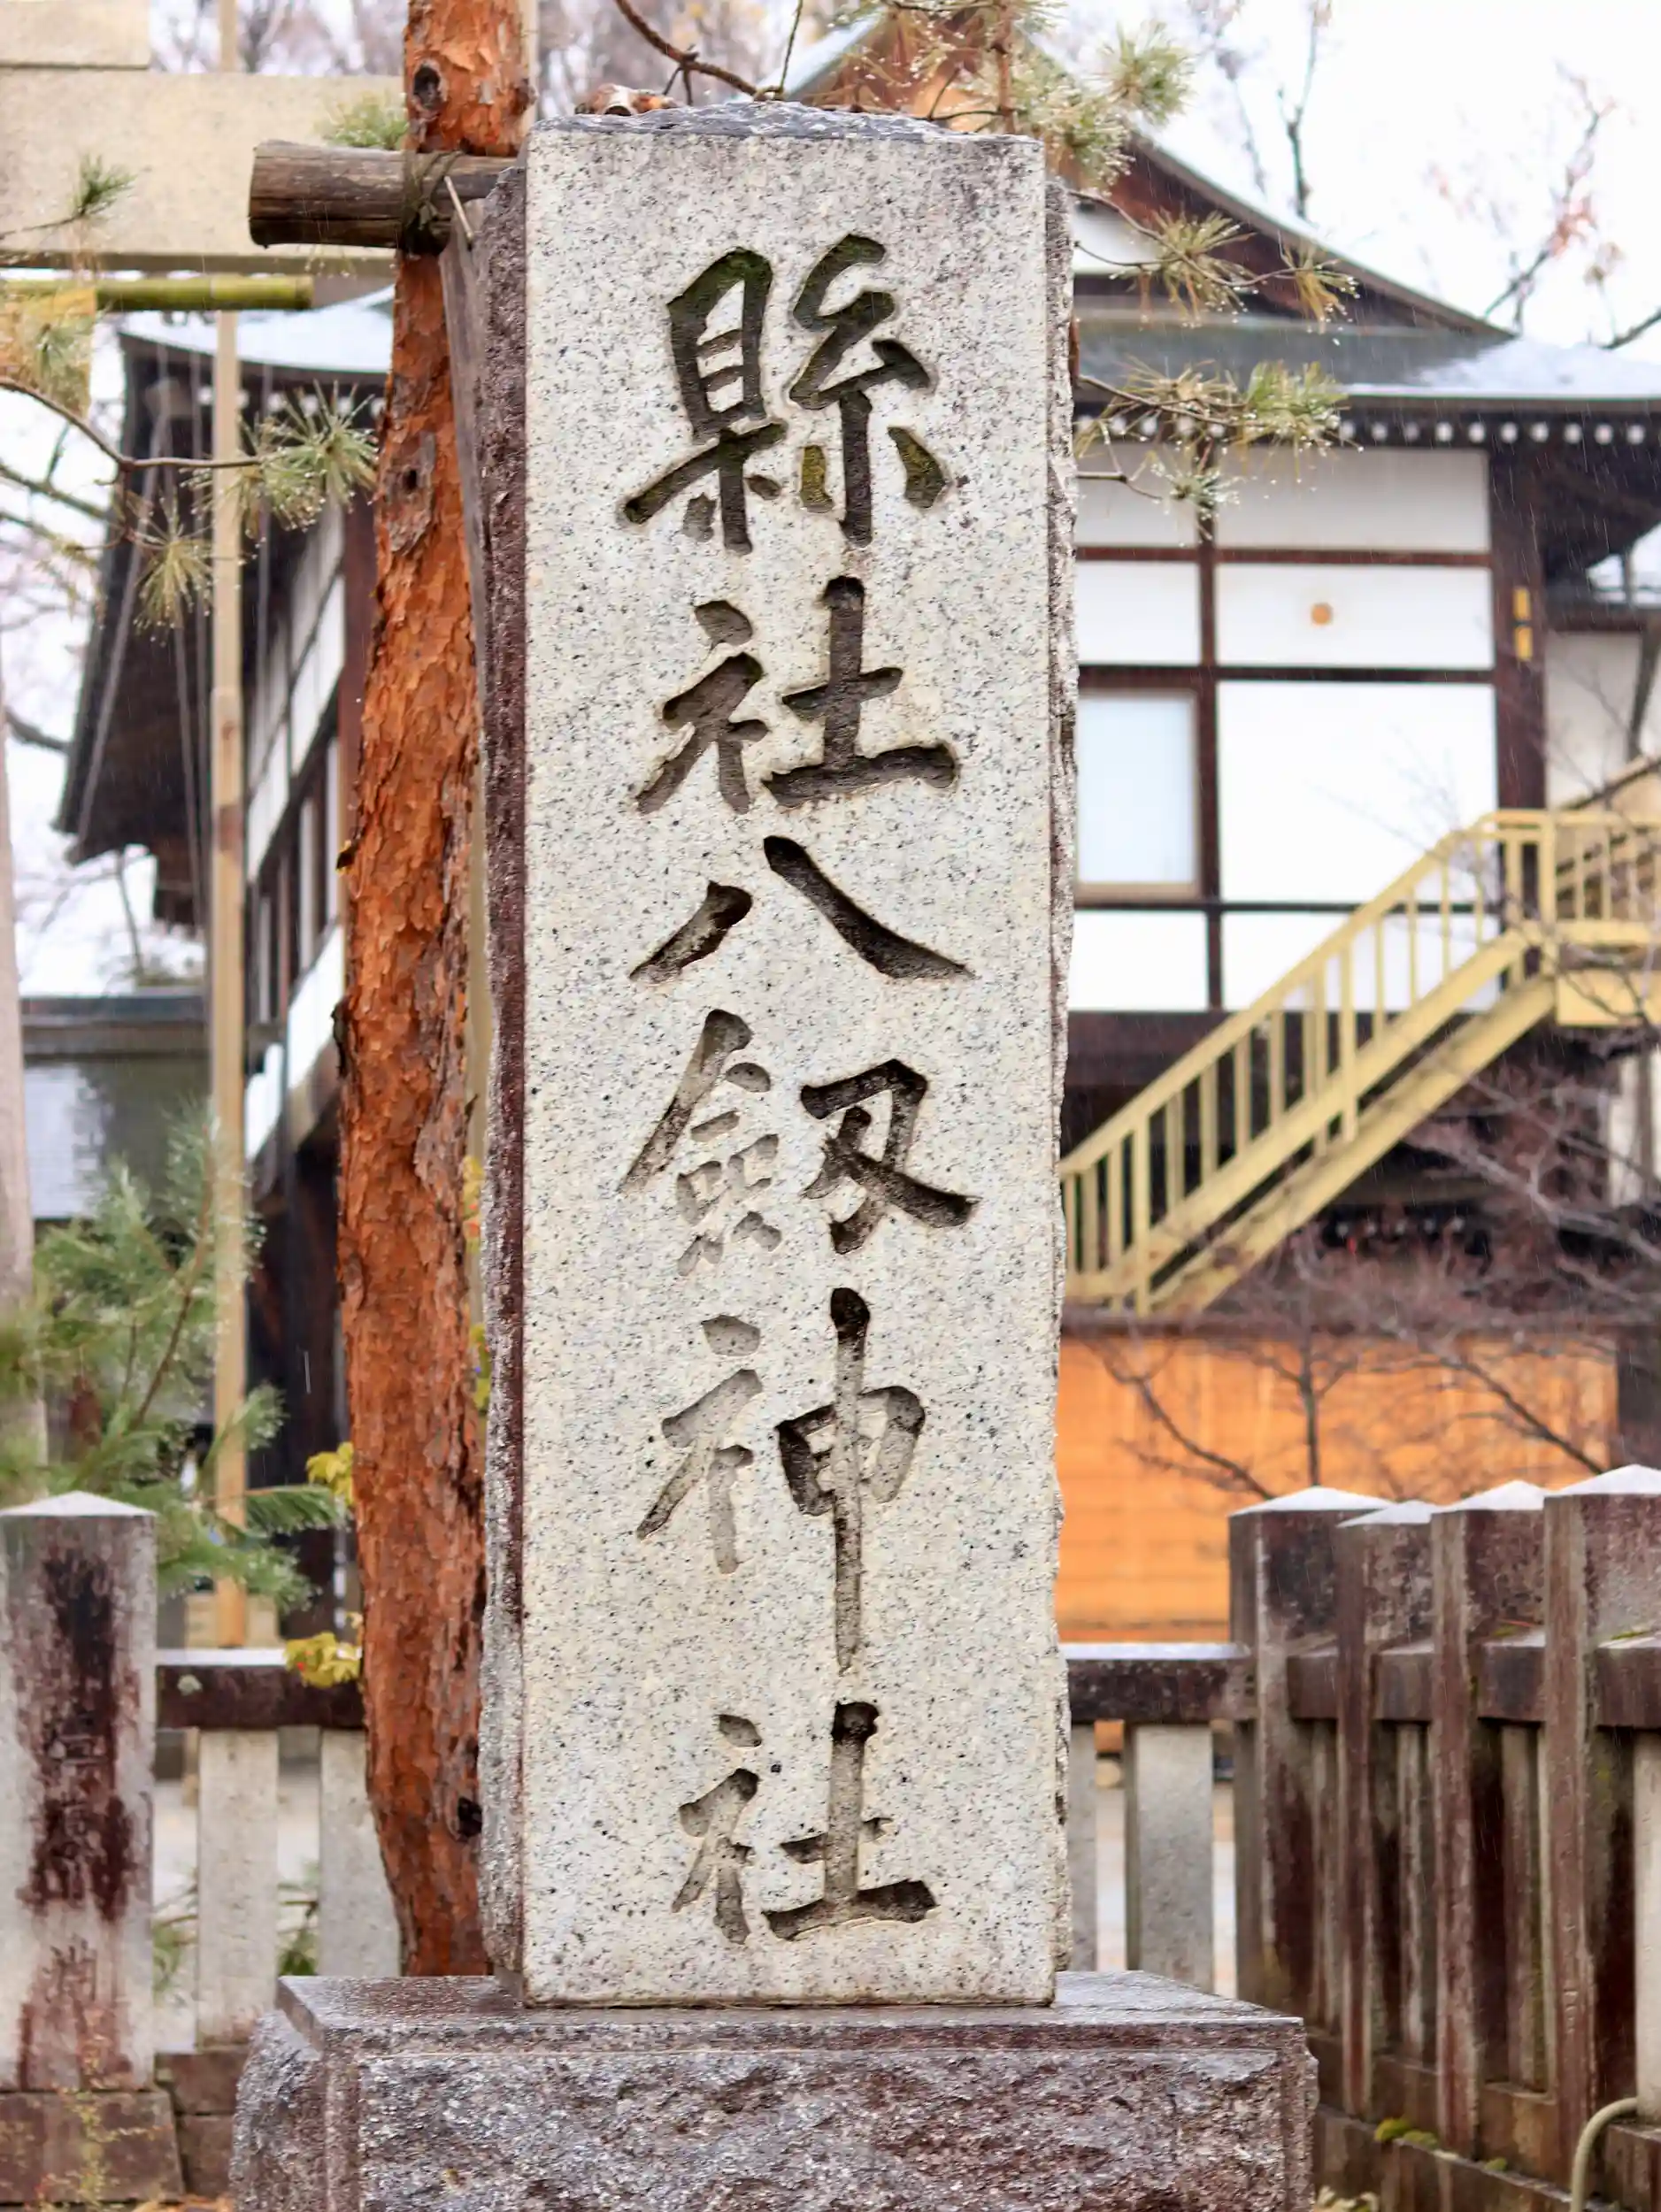 縣社八劔神社